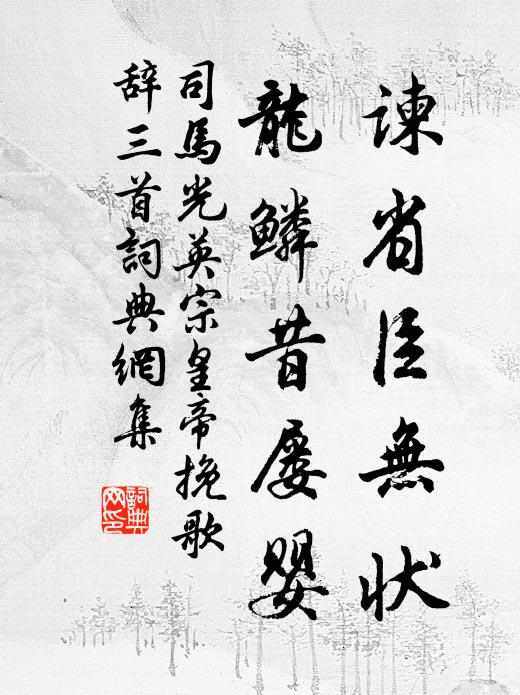 諫省臣無状
龍鱗昔屡嬰
司馬光英宗皇帝挽歌
辞三首詞典網集
詞典
网印